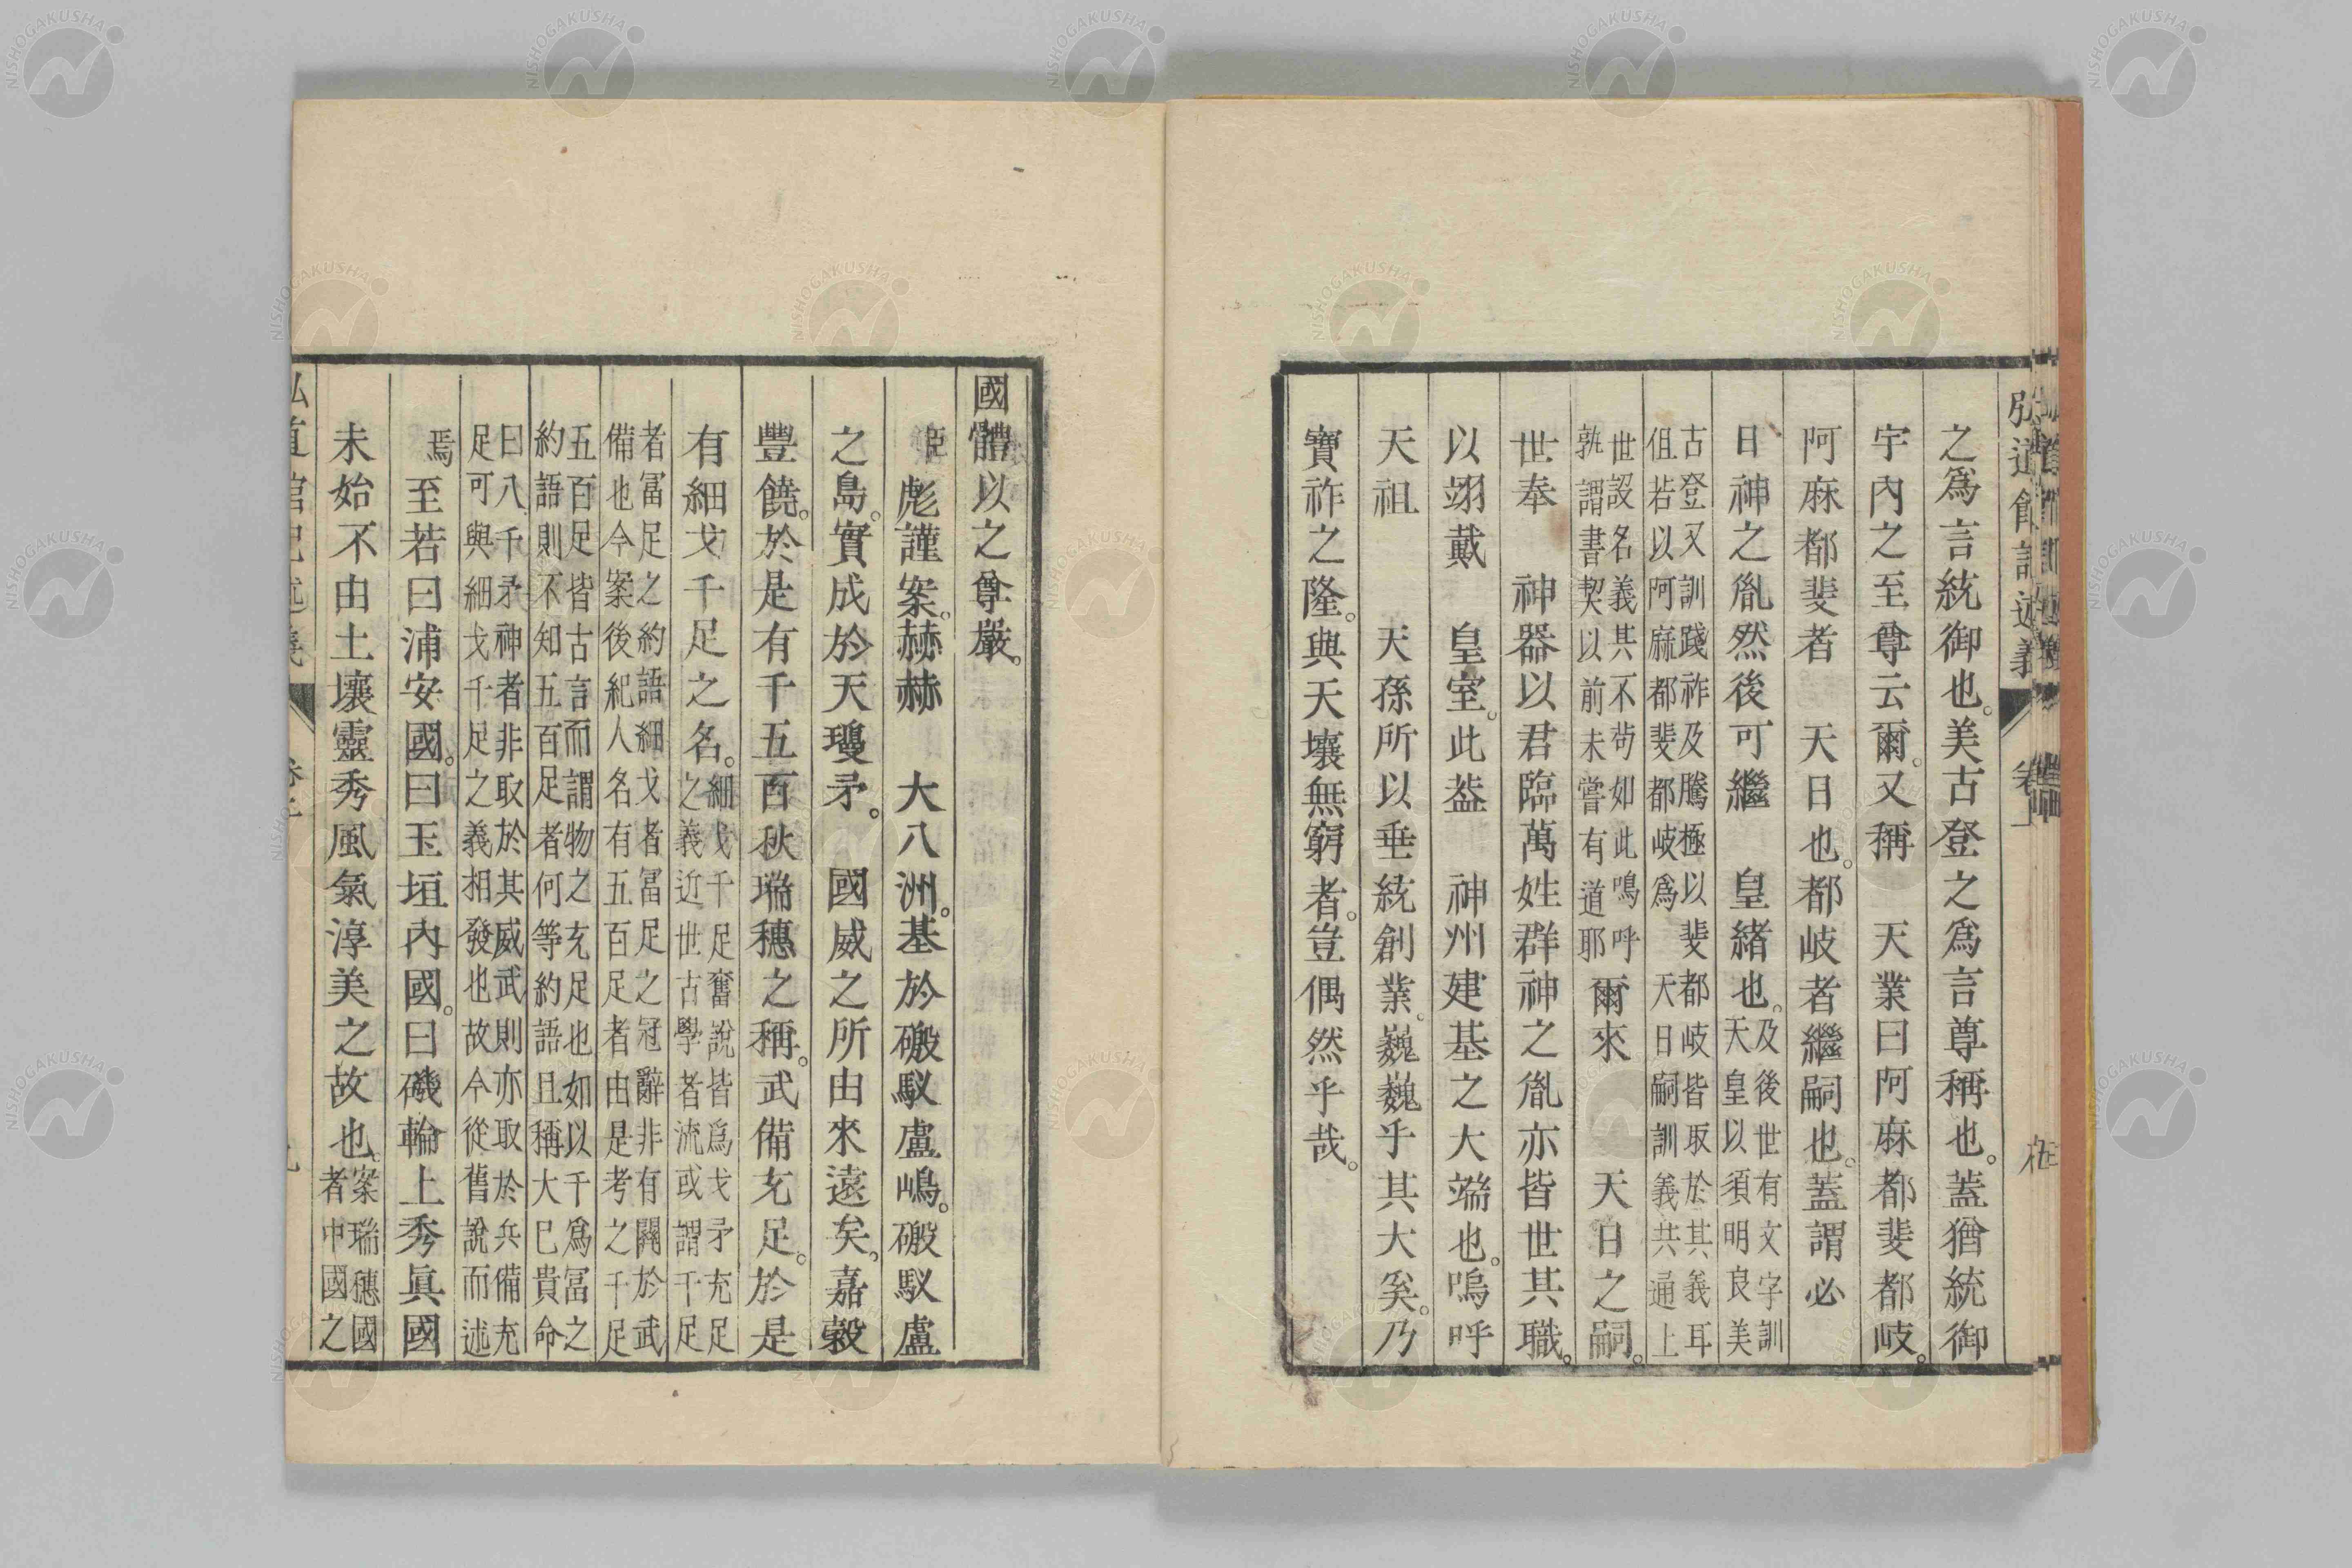 弘道館記述義 卷上
之爲言統御也。美古登之爲言尊稱也。蓋猶統御
宇內之至尊云爾。又稱 天業曰阿麻都斐都岐。
阿麻都斐者 天日也。都岐者繼嗣也。蓋謂必
日神之胤然後可繼 皇緒也。及後世有文字訓
天皇以須明良美
古登又訓踐祚及騰極以斐都岐皆取於其義耳
伹若以阿麻都斐都岐爲 天日嗣訓義共通上
世設名義其不苟如此嗚呼
孰謂書契以前未嘗有道耶
爾來 天日之嗣。
世奉 神器以君臨萬姓群神之胤亦皆世其職。
以翊戴 皇室。此葢 神州建基之大端也。嗚呼
天祖 天孫所以垂統創業。巍巍乎其大矣。乃
寶祚之隆。與天壤無窮者。豈偶然乎哉。
國體以之尊嚴。
臣彪謹案。赫赫 大八洲。基於磤馭盧嶋。磤馭盧
之島。實成於天瓊矛。 國威之所由來遠矣。嘉穀
豐饒。於是有千五百秋瑞穗之稱。武備充足。於是
有細戈千足之名。細戈千足奮說皆爲戈矛充足
之義近世古學者流或謂千足
者冨足之約語細戈者冨足之冠辭非有關於武
備也今案後紀人名有五百足者由是考之千足
五百足皆古言而謂物之充足也如以千爲冨之
約語則不知五百足者何等約語且稱大巳貴命
曰八千矛神者非取於其威武則亦取於兵備充
足可與細戈千足之義相發也故今從舊說而述
焉
至若曰浦安國。曰玉垣內國。曰磯輪上秀眞國
未始不由土壤靈秀風氣淳美之故也。案瑞穗國
者中國之
弘道館記述義
NISHOGAKUSHA